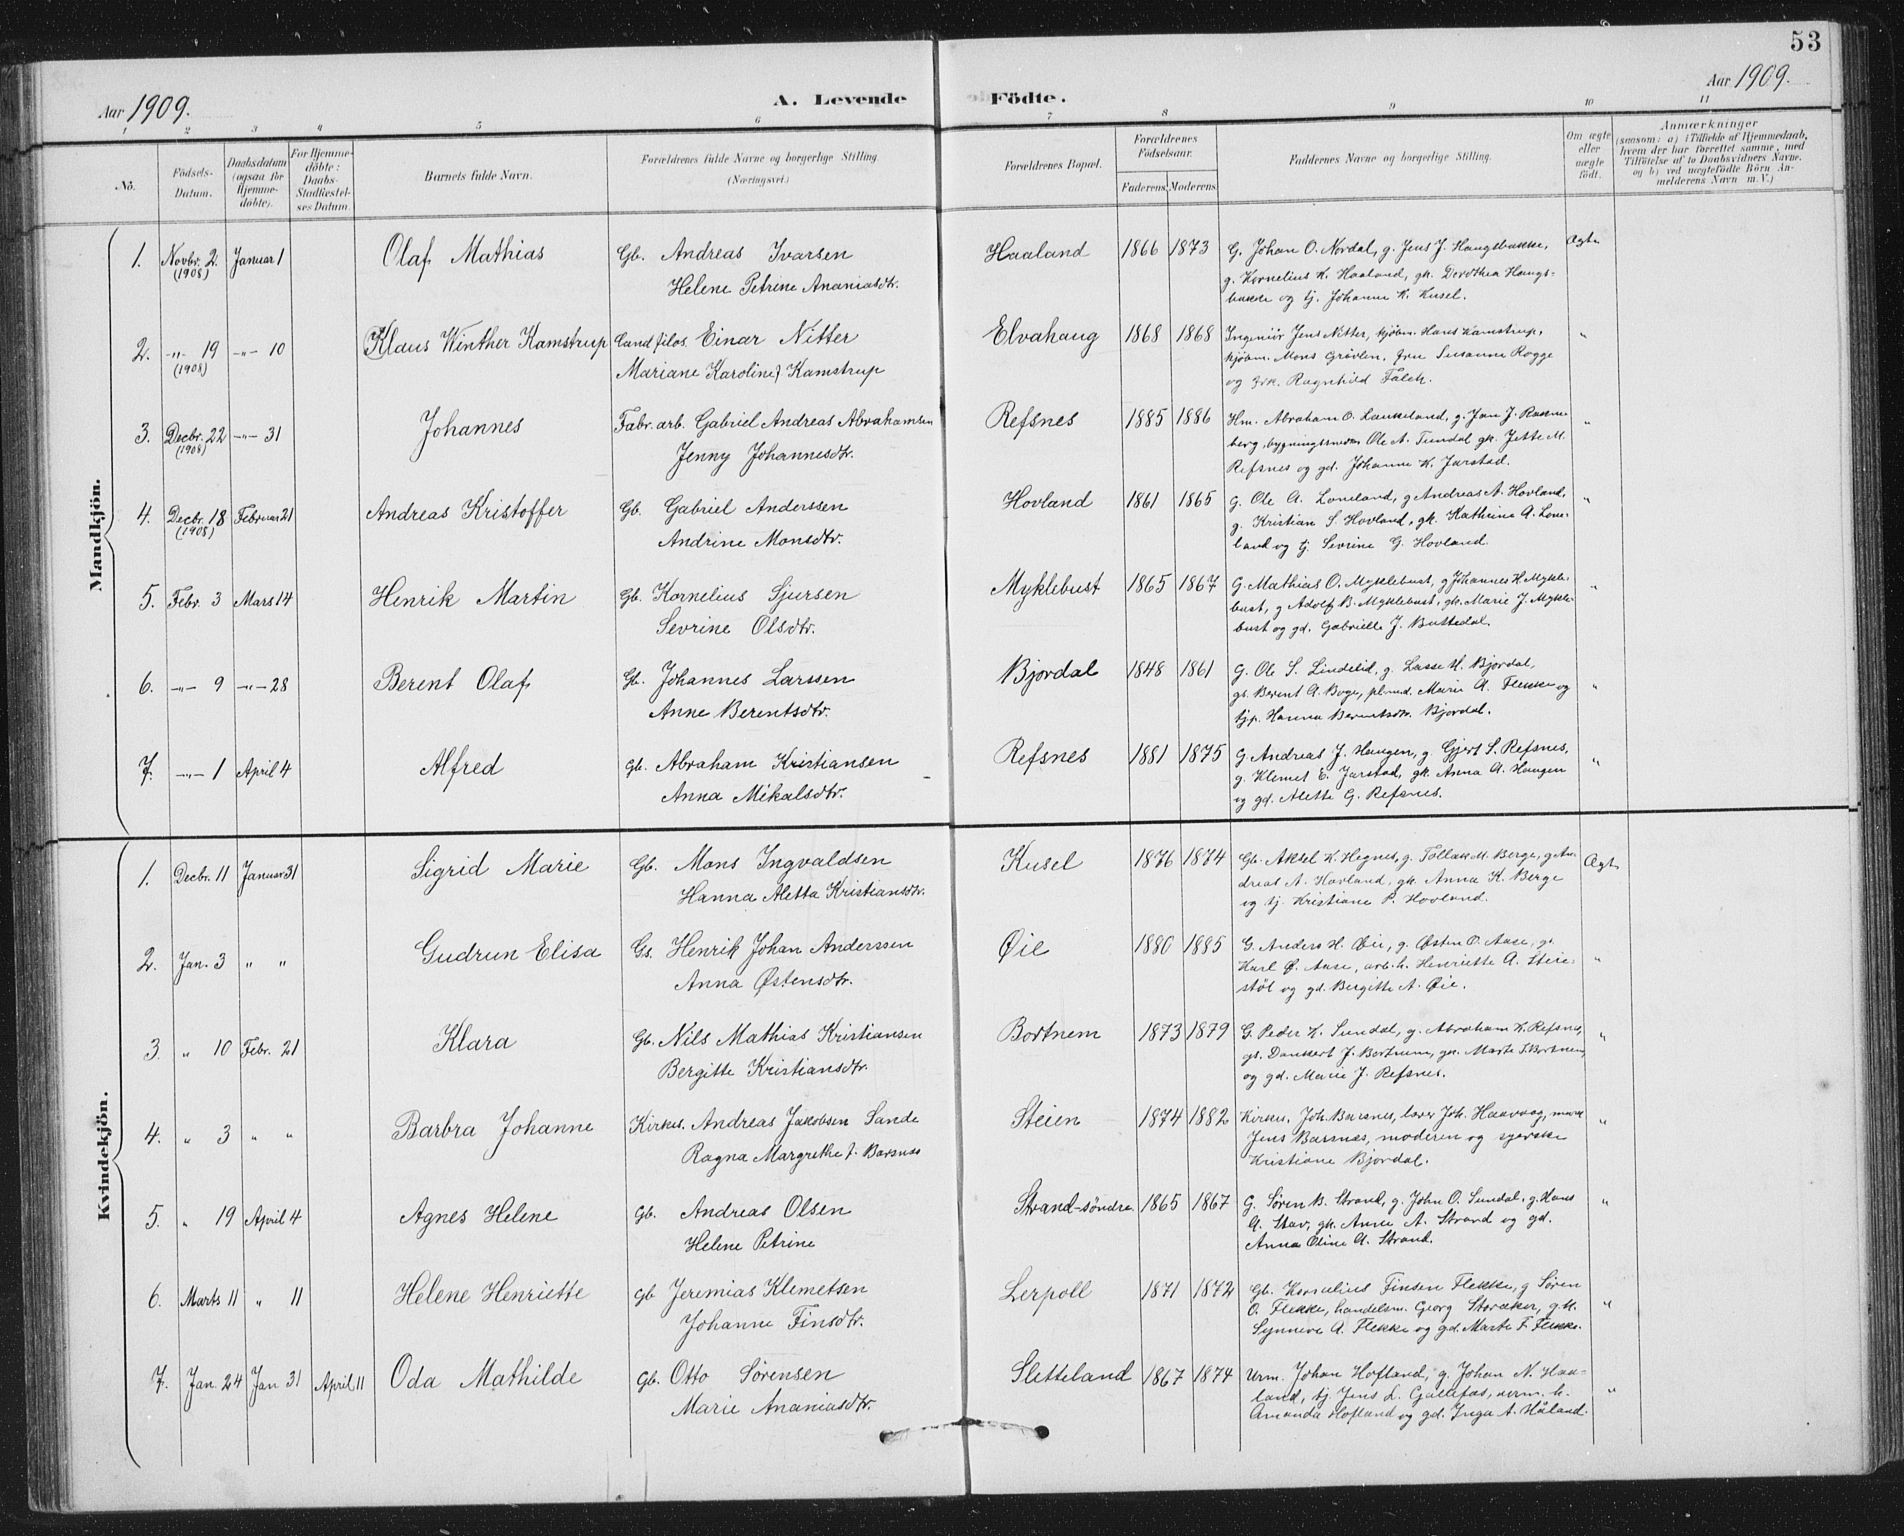 53
Aar 1909.
A. Levende Födte.
Aar 1909.
1 2 3 4 5 6 7 8 9 10 11
No.
Födsels-Datum.
Daabsdatum (ogsaa for Hjemmedöbte).
For Hjemmedöbte: Daabs-Stadfæstelses Datum.
Barnets fulde Navn.
Forældrenes fulde Navne og borgerlige Stilling.
(Næringsvei.)
Forældrenes Bopæl.
Forældrenes Födselsaar.
Faderens. Moderens.
Faddernes Navne og borgerlige Stilling.
Om ægte eller uægte födt.
Anmærkninger
(saasom: a) i Tilfælde af Hjemmedaab,
hvem der har forrettet samme, med
Tilföielse af to Daabsvidners Navne.
og b) ved uægtefödte Börn An-
melderens Navn m. V.)
Mandkjön.
1. Novbr. 2. (1908) Januar 1 Olaf Mathias Gb. Andreas Ivarsen Haaland 1866 1873 G. Johan O. Nordal, g. Jens J. Haugsbakke, Ægte
Helene Petrine Ananiasdtr. g. Kornelius K. Haaland, gk. Dorothea Haugs-
bakke og tj. Johanne K. Kusel.
2. -"- 19 (1908) -"- 10 Klaus Winther Kamstrup Cand filos. Einar Nitter Elvahaug 1868 1868 Ingeniör Jens Nitter, kjöbm. Hans Kamstrup, "
Mariane Karoline f. Kamstrup kjöbm. Mons Grövlen, fru Susanne Rogge
og frk. Ragnhild Falch.
3. Decbr. 22 (1908) -"- 31 Johannes Fabr. arb. Gabriel Andreas Abrahamsen Refsnes 1885 1886 Hm. Abraham O. Laukeland, g. Jan J. "
Jenny Johannesdtr. berg, Ole A. Tundal gk. Jette M.
Refsnes og gd. Johanne K. Jarstad.
4. Decbr. 18 (1908) Februar 21 Andreas Kristoffer Gb. Gabriel Anderssen Hovland 1861 1865 G. Ole A. Loneland, g Andreas A. Hovland, "
Andrine Monsdtr. g. Kristian S. Hovland, gk. Kathrine A. Lone-
land og tj. Sevrine G. Hovland.
5. Febr. 3 Mars 14 Henrik Martin Gb. Kornelius Sjursen Myklebust 1865 1867 G. Mathias O. Myklebust, g Johannes H. Mykle- "
Sevrine Olsdtr. bust, g Adolf B. Myklebust, gk. Marie J. Mykle-
bust og gd. Gabrielle J. Buttedal.
6. -"- 9 -"- 28 Berent Olaf Gb. Johannes Larssen Bjordal 1848 1861 G. Ole S. Lindelid, g. Lasse H. Bjordal, "
Anne Berentsdtr. gs. Berent A. Boge, Marie A. Flekke og
tjp. Hanna Berentsdtr. Bjordal.
7. -"- 1 April 4 Alfred Gb. Abraham Kristiansen Refsnes 1881 1875 G. Andreas J. Haugen, g. Gjert S. Refsnes, "
Anna Mikalsdtr. g. Klemet E. Jarstad, gk. Anna A. Haugen
og gd. Alette G. Refsnes.
Kvindekjön.
1. Decbr. 11 Januar 31 Sigrid Marie Gb. Mons Ingvaldsen Kusel 1876 1874 Gb. Aksel K. Hegnes, g. Tollak M. Berge, g An- Ægte
Hanna Aletta Kristiansdtr. dreas A. Hovland, gk. Anna K. Berge
og tj. Kristiane P. Hovland.
2. Jan. 3 " " Gudrun Elisa Gs. Henrik Johan Anderssen Øie 1880 1885 G. Anders H. Øie, g. Østen O. Aase, gs. "
Anna Østensdtr. Karl Ø. Aase, arb. h. Henriette A. Steie-
stöl og gd. Bergitte A. Øie.
3. " 10 Febr. 21 Klara Gb. Nils Mathias Kristiansen Bortnem 1873 1879 G. Peder K. Sundal, g. Abraham K. Refsnes, "
Bergitte Kristiansdtr. gs. Dankert J. Bortnem, gk. Marte S. Bortnem,
og gd. Marie J. Refsnes.
4. " 3 " " Barbra Johanne Kirkes. Andreas Jakobsen Sande Steien 1874 1882 Kirkes. Joh. Barsnes, lærer Joh. Haavaag, "
Ragna Margrethe f. Barsnes Jens Barsnes, moderen og syerske
Kristiane Bjordal.
5. " 19 April 4 Agnes Helene Gb. Andreas Olsen Strand-søndre 1865 1867 G. Søren B. Strand, g. John O. Sundal, g. Hans "
Helene Petrine A. Stav, gk. Anne A. Strand og gd.
Anna Oline A. Strand.
6. Marts 11 " 11 Helene Henriette Gb Jeremias Klemetsen Lerpoll 1871 1872 Gb. Kornelius Finsen Flekke, g Søren "
Johanne Finsdtr. O. Flekke, handelsm. Georg Storaker, gk.
Synneve A. Flekke og gd. Marte F. Flekke.
7. Jan. 24 Jan 31 April 11 Oda Mathilde Gb. Otto Sørensen Sletteland 1867 1874 Urm. Johan Hofland, g. Johan N. Haa- "
Marie Ananiasdtr. land, tj Jens L. Gallefos, urm. h.
Amanda Hofland og gd. Inga A. Håland.